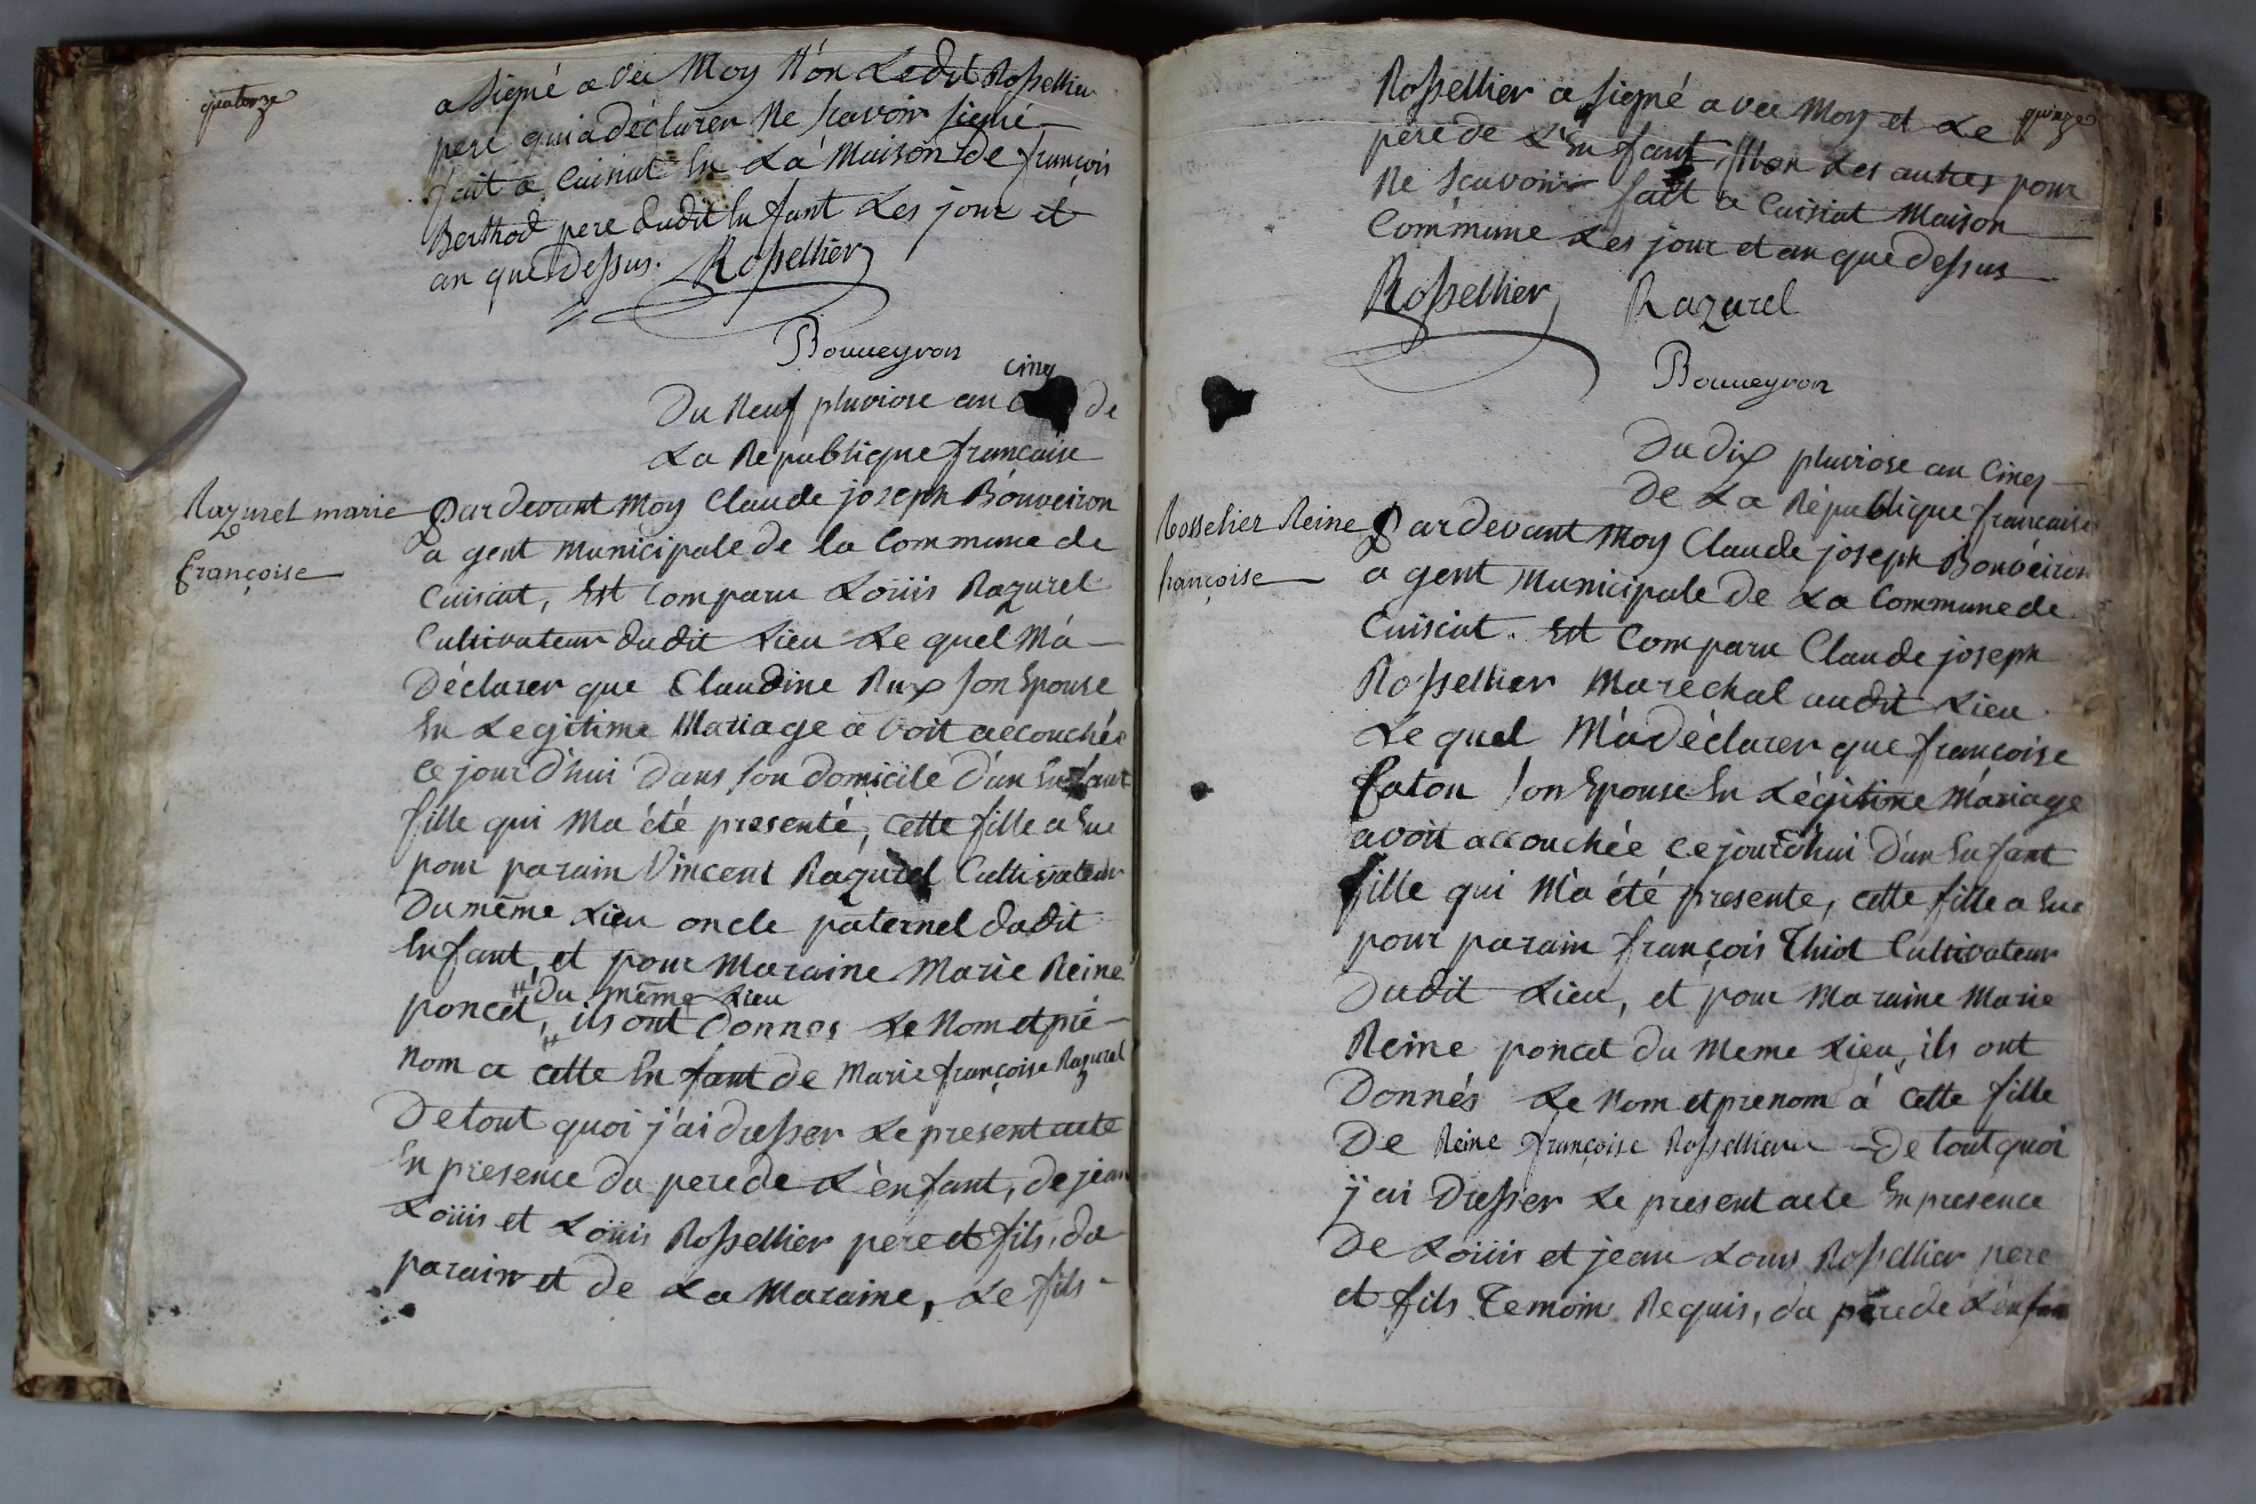 quatorze
a signé avec Moy Non Ledit Rossellier
pere qui a déclarer Ne scavoir signé
fait a Cuisiat En La Maison de françois
Berthod pere dudit Enfant Les jour et
an que dessus. Rossellier
Bouveyron
cinq
Du Neuf pluviose an de
La Republique francaise
Razurel marie
françoise
Pardevant Moy Claude joseph Bouveiron
agent Municipale de la Commune de
Cuisiat, Est Comparu Loüis Razurel
Cultivateur dudit Lieu Le quel Má
Déclarer que Claudine Rux son Epouse
En Legitime Mariage avoit accouchée
ce jourd'hui Dans son domicile D'un Enfant
fille qui Ma été presenté, cette fille a Eue
pour parain Vincent Razurel Cultivateur
Du même Lieu oncle paternel dudit
Enfant, et pour Maraine Marie Reine
du même Lieu
poncet, ils ont Donnes Le Nom et pré
Nom a cette Enfant de Marie françoise Razurel
De tout quoi j'ai dresser Le present acte
En presence du pere de L'enfant, de jean
Loüis et Loüis Rossellier pere et fils, du
parain et de La Maraine, Le fils
quinze
Rossellier a signé avec Moy et Le
pere de L'Enfant, Non Les autres pour
Ne scavoir fait a Cuisiat Maison
Commune Les jour et an que dessus
Rossellier Razurel
Bouveyron
Du dix pluviose an Cinq
De La République francaise
Rosselier Reine
françoise
Pardevant Moy Claude joseph Bouvéiron
agent Municipale De La Commune de
Cuisiat. Est Comparu Claude joseph
Rossellier Marechal audit Lieu
Le quel M'a déclarer que françoise
faton son Epouse En Légitime Mariage
avoit accouchée ce jourd'hui D'un Enfant
fille qui M'a été presente, cette fille a Eue
pour parain françois Thiot Cultivateur
Dudit Lieu, et pour Maraine Marie
Reine poncet du Meme Lieu, ils ont
Donnés Le Nom et prenom á cette fille
De Reine françoise Rossellier De tout quoi
j'ai Dresser Le present acte En presence
De Loüis et jean Louis Rossellier pere
et fils Temoins Requis, du pere de L'enfan